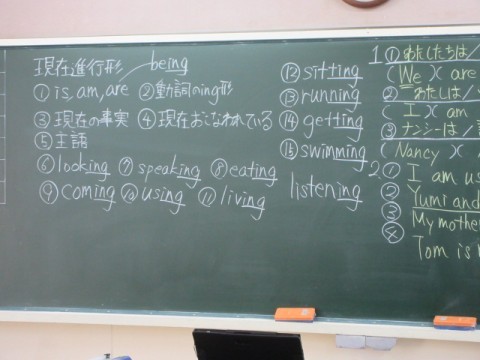 現在進行形 being
① is, am, are ② 動詞のing形
③ 現在の事実 ④ 現在おこなわれている
⑤ 主語
⑥ looking ⑦ speaking ⑧ eating
⑨ coming ⑩ using ⑪ living
⑫ sitting
⑬ running
⑭ getting
⑮ swimming
listening
1 ① わたしたちは
(We)( are
② わたしは
( I )( am
③ ナンシーは
(Nancy)(
2 ① I am us
② Yumi and
③ My mothe
④
Tom is